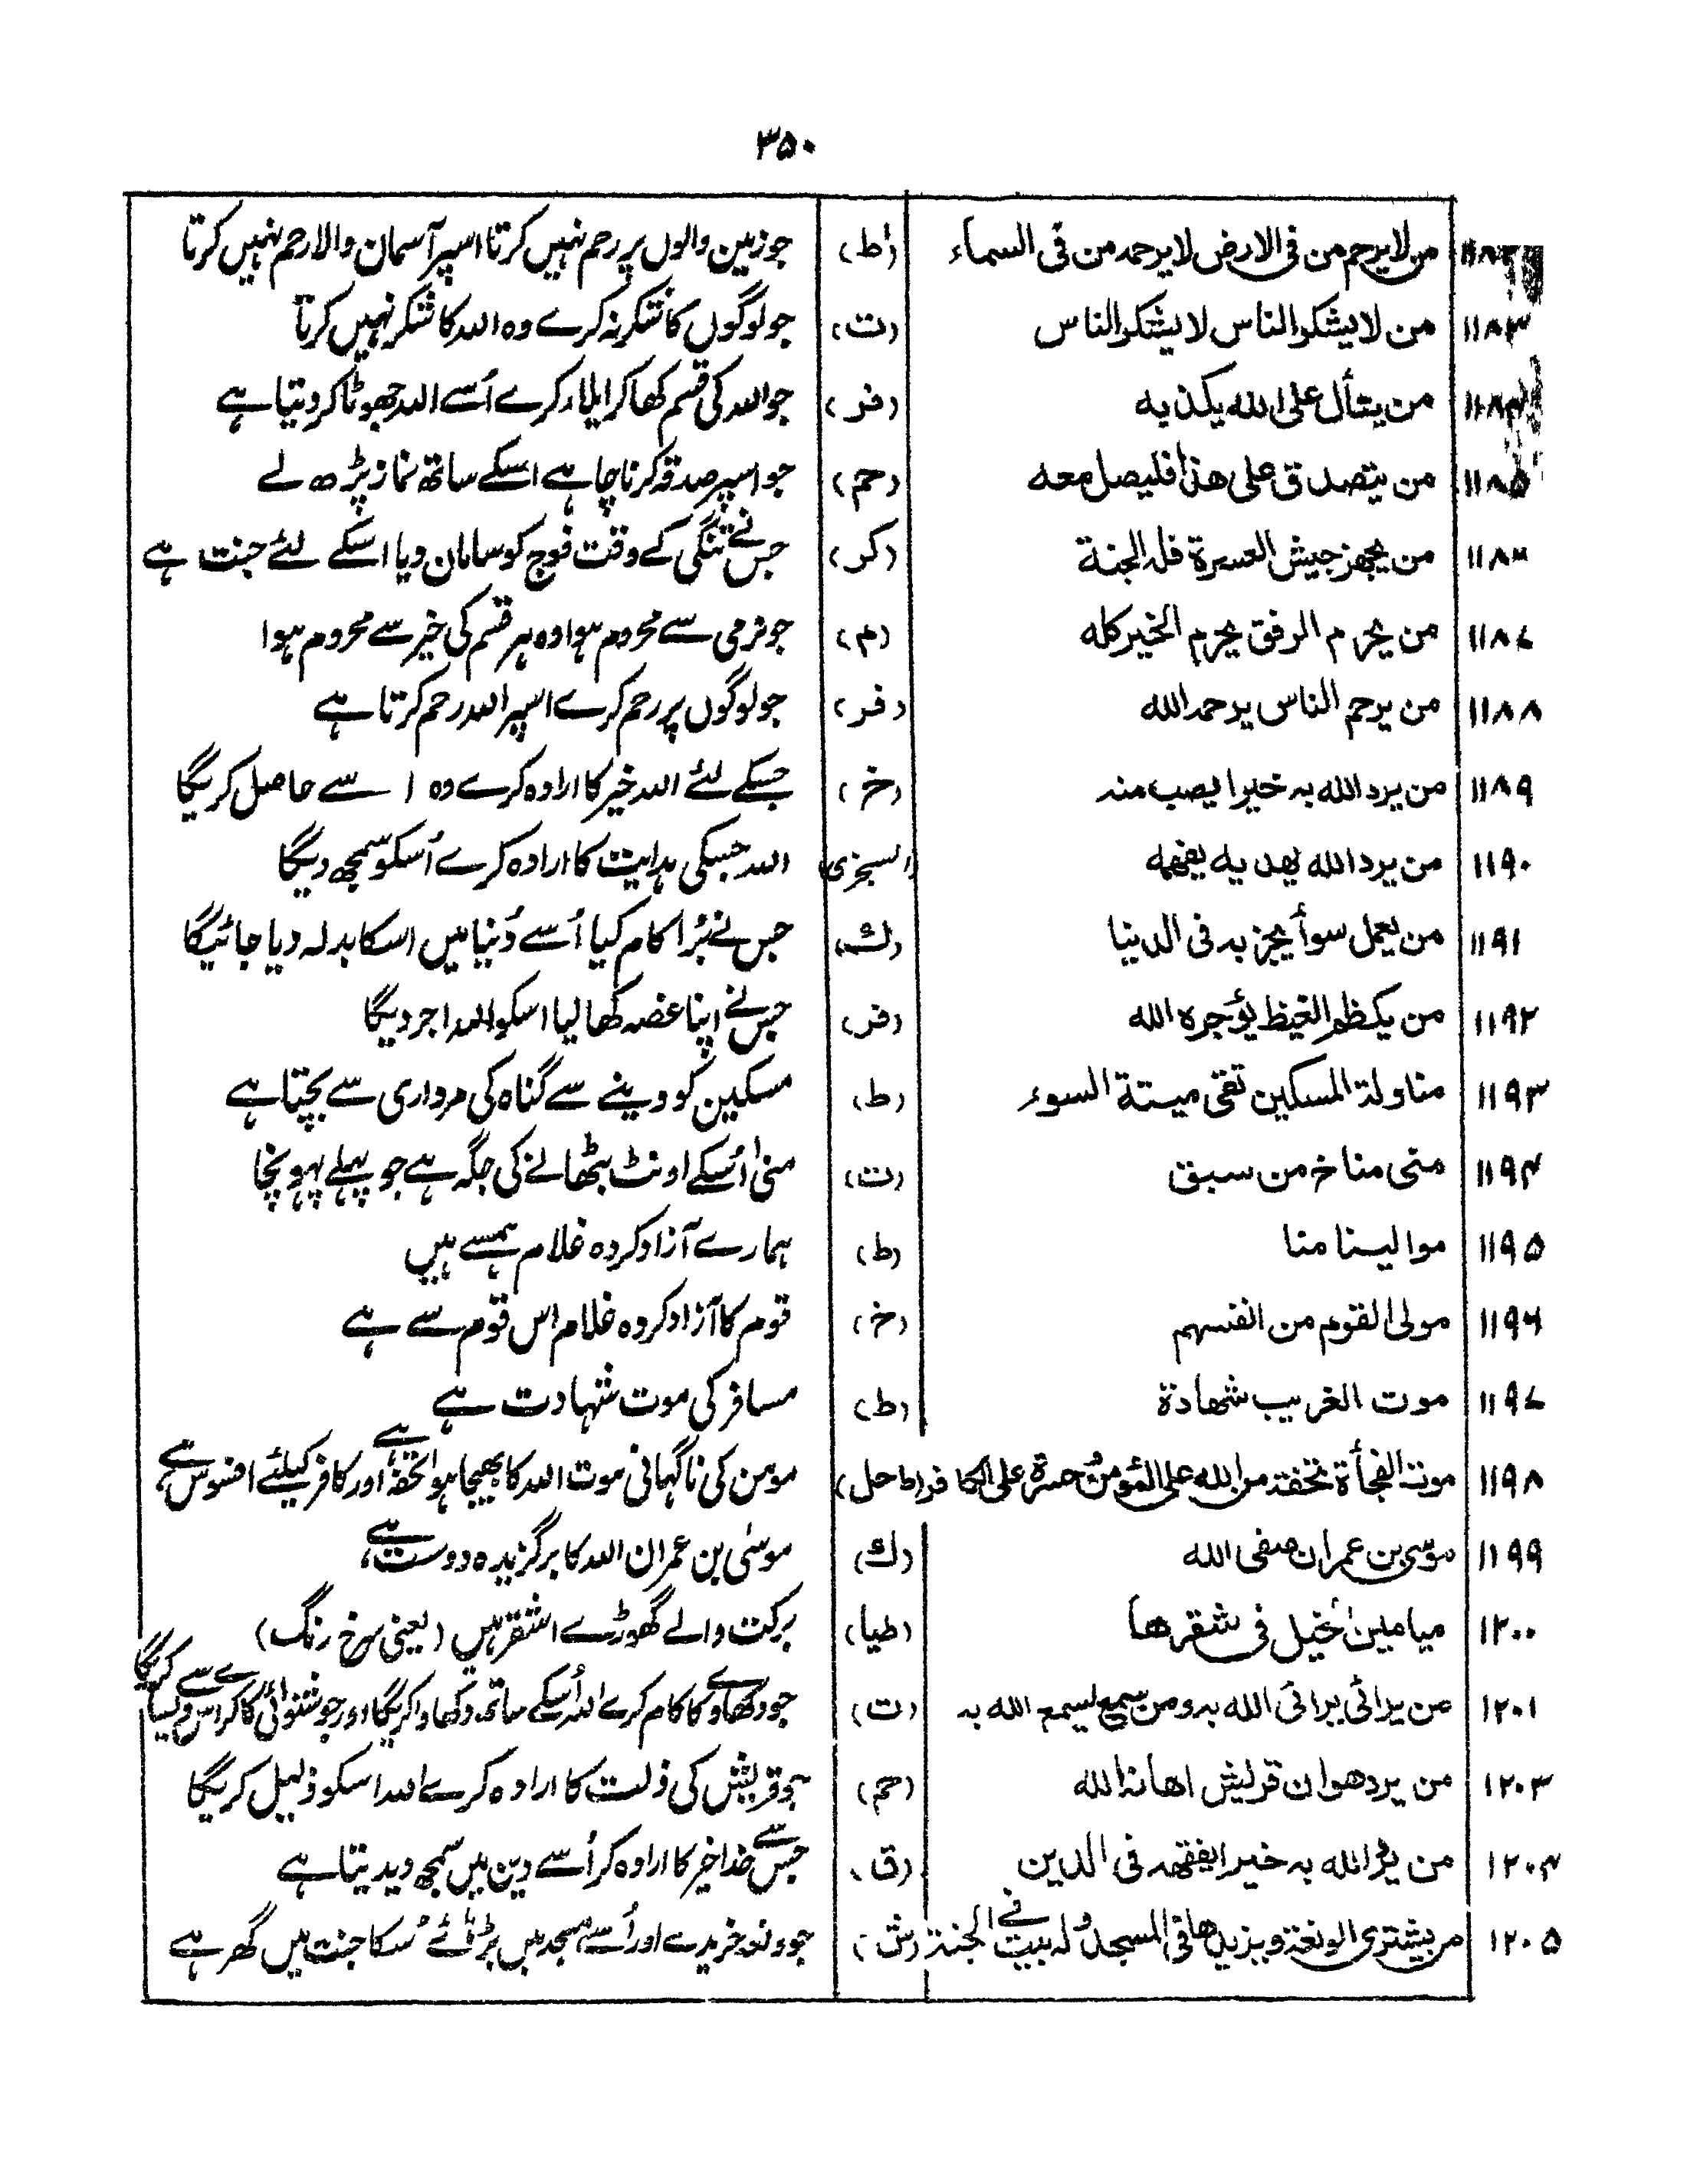 ۳۵۰
۱۱۸۲ من لا يرحم من فى الارض لا يرحمه من فى السماء (ط) جو زمین والوں پر رحم نہیں کرتا اسپر آسمان والا رحم نہیں کرتا
۱۱۸۳ من لا يشكو الناس لا يشكو الناس (ت) جو لوگوں کا شکر نہ کرے وہ اللہ کا شکر نہیں کرتا
۱۱۸۴ من يتأل على الله يكذبه (فر) جو اللہ کی قسم کھا کر ایلاء کرے اُسے اللہ جھوٹا کر دیتا ہے
۱۱۸۵ من يتصدق على هذا فليصل معه (حم) جو اسپر صدقہ کرنا چاہے اسکے ساتھ نماز پڑھ لے
۱۱۸۶ من يجهز جيش العسرة فله الجنة (کر) جس نے تنگی کے وقت فوج کو سامان دیا اسکے لئے جنت ہے
۱۱۸۷ من يحرم الرفق يحرم الخير كله (م) جو نرمی سے محروم ہوا وہ ہر قسم کی خیر سے محروم ہوا
۱۱۸۸ من يرحم الناس يرحمه الله (فر) جو لوگوں پر رحم کرے اسپر اللہ رحم کرتا ہے
۱۱۸۹ من يرد الله به خيرا يصب منه (خ) جسکے لئے اللہ خیر کا ارادہ کرے وہ اسے حاصل کریگا
۱۱۹۰ من يرد الله يهديه يفهمه (السجزی) اللہ جسکی ہدایت کا ارادہ کرے اُسکو سمجھ دیگا
۱۱۹۱ من يعمل سوأ يجز به فى الدنيا (ك) جس نے بُرا کام کیا اُسے دُنیا میں اسکا بدلہ دیا جائیگا
۱۱۹۲ من يكظم الغيظ يؤجره الله (فر) جس نے اپنا غصہ کھا لیا اسکو اللہ اجر دیگا
۱۱۹۳ مناولة المسكين تقى ميتة السوء (ط) مسکین کو دینے سے گناہ کی مرداری سے بچتا ہے
۱۱۹۴ منى مناخ من سبق (ت) منیٰ اُسکے اونٹ بٹھانے کی جگہ ہے جو پہلے پہونچا
۱۱۹۵ موالينا منا (ط) ہمارے آزاد کردہ غلام ہمسے ہیں
۱۱۹۶ مولى القوم من انفسهم (خ) قوم کا آزاد کردہ غلام اس قوم سے ہے
۱۱۹۷ موت الغريب شهادة (ط) مسافر کی موت شہادت ہے
۱۱۹۸ موت الفجأة تحفة من الله على المؤمن وحسرة على الكافر (ط حل) مومن کی ناگہانی موت اللہ کا بھیجا ہوا تحفہ ہے اور کافر کیلئے افسوس ہے
۱۱۹۹ موسى بن عمران صفى الله (ك) موسیٰ بن عمران اللہ کا برگزیدہ دوست ہے،
۱۲۰۰ ميامين الخيل فى شقرها (طيا) برکت والے گھوڑے اشقر ہیں (یعنی سرخ رنگ)
۱۲۰۱ من يرائى يرائى الله به ومن يسمع يسمع الله به (ت) جو دکھاوے کا کام کرے اللہ اُسکے ساتھ دکھاوا کریگا اور جو شنوائی کا کرے اس سے ویسا کریگا
۱۲۰۳ من يرد هوان قريش اهانه الله (حم) جو قریش کی ذلت کا ارادہ کرے اللہ اسکو ذلیل کریگا
۱۲۰۴ من يرد الله به خيرا يفقهه فى الدين (ق) جس سے خدا خیر کا ارادہ کر اُسے دین میں سمجھ دیدیتا ہے
۱۲۰۵ من يشترى الونعة ويزيدها فى المسجد وله بيت فى الجنة (ش) جو ونعہ خریدے اور اُسے مسجد میں بڑہائے اُسکا جنت میں گھر ہے